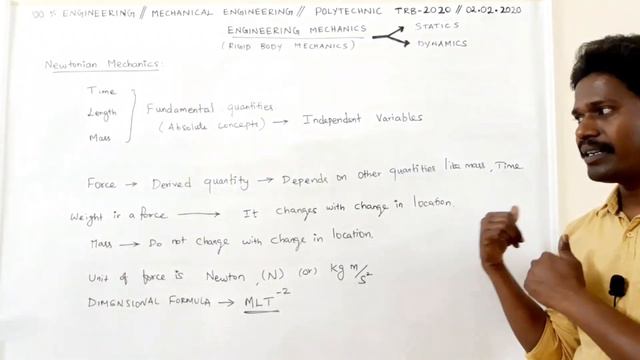 ENGINEERING // MECHANICAL ENGINEERING // POLYTECHNIC TRB-2020 // 02.02.2020
ENGINEERING MECHANICS → STATICS
(RIGID BODY MECHANICS) → DYNAMICS
Newtonian Mechanics:
Time
Length
Mass
Fundamental quantities
(Absolute concepts) → Independent Variables
Force → Derived quantity → Depends on other quantities like mass, Time
Weight is a force → It changes with change in location.
Mass → Do not change with change in location.
Unit of force is Newton, (N) (or) kg m/s²
DIMENSIONAL FORMULA → MLT⁻²